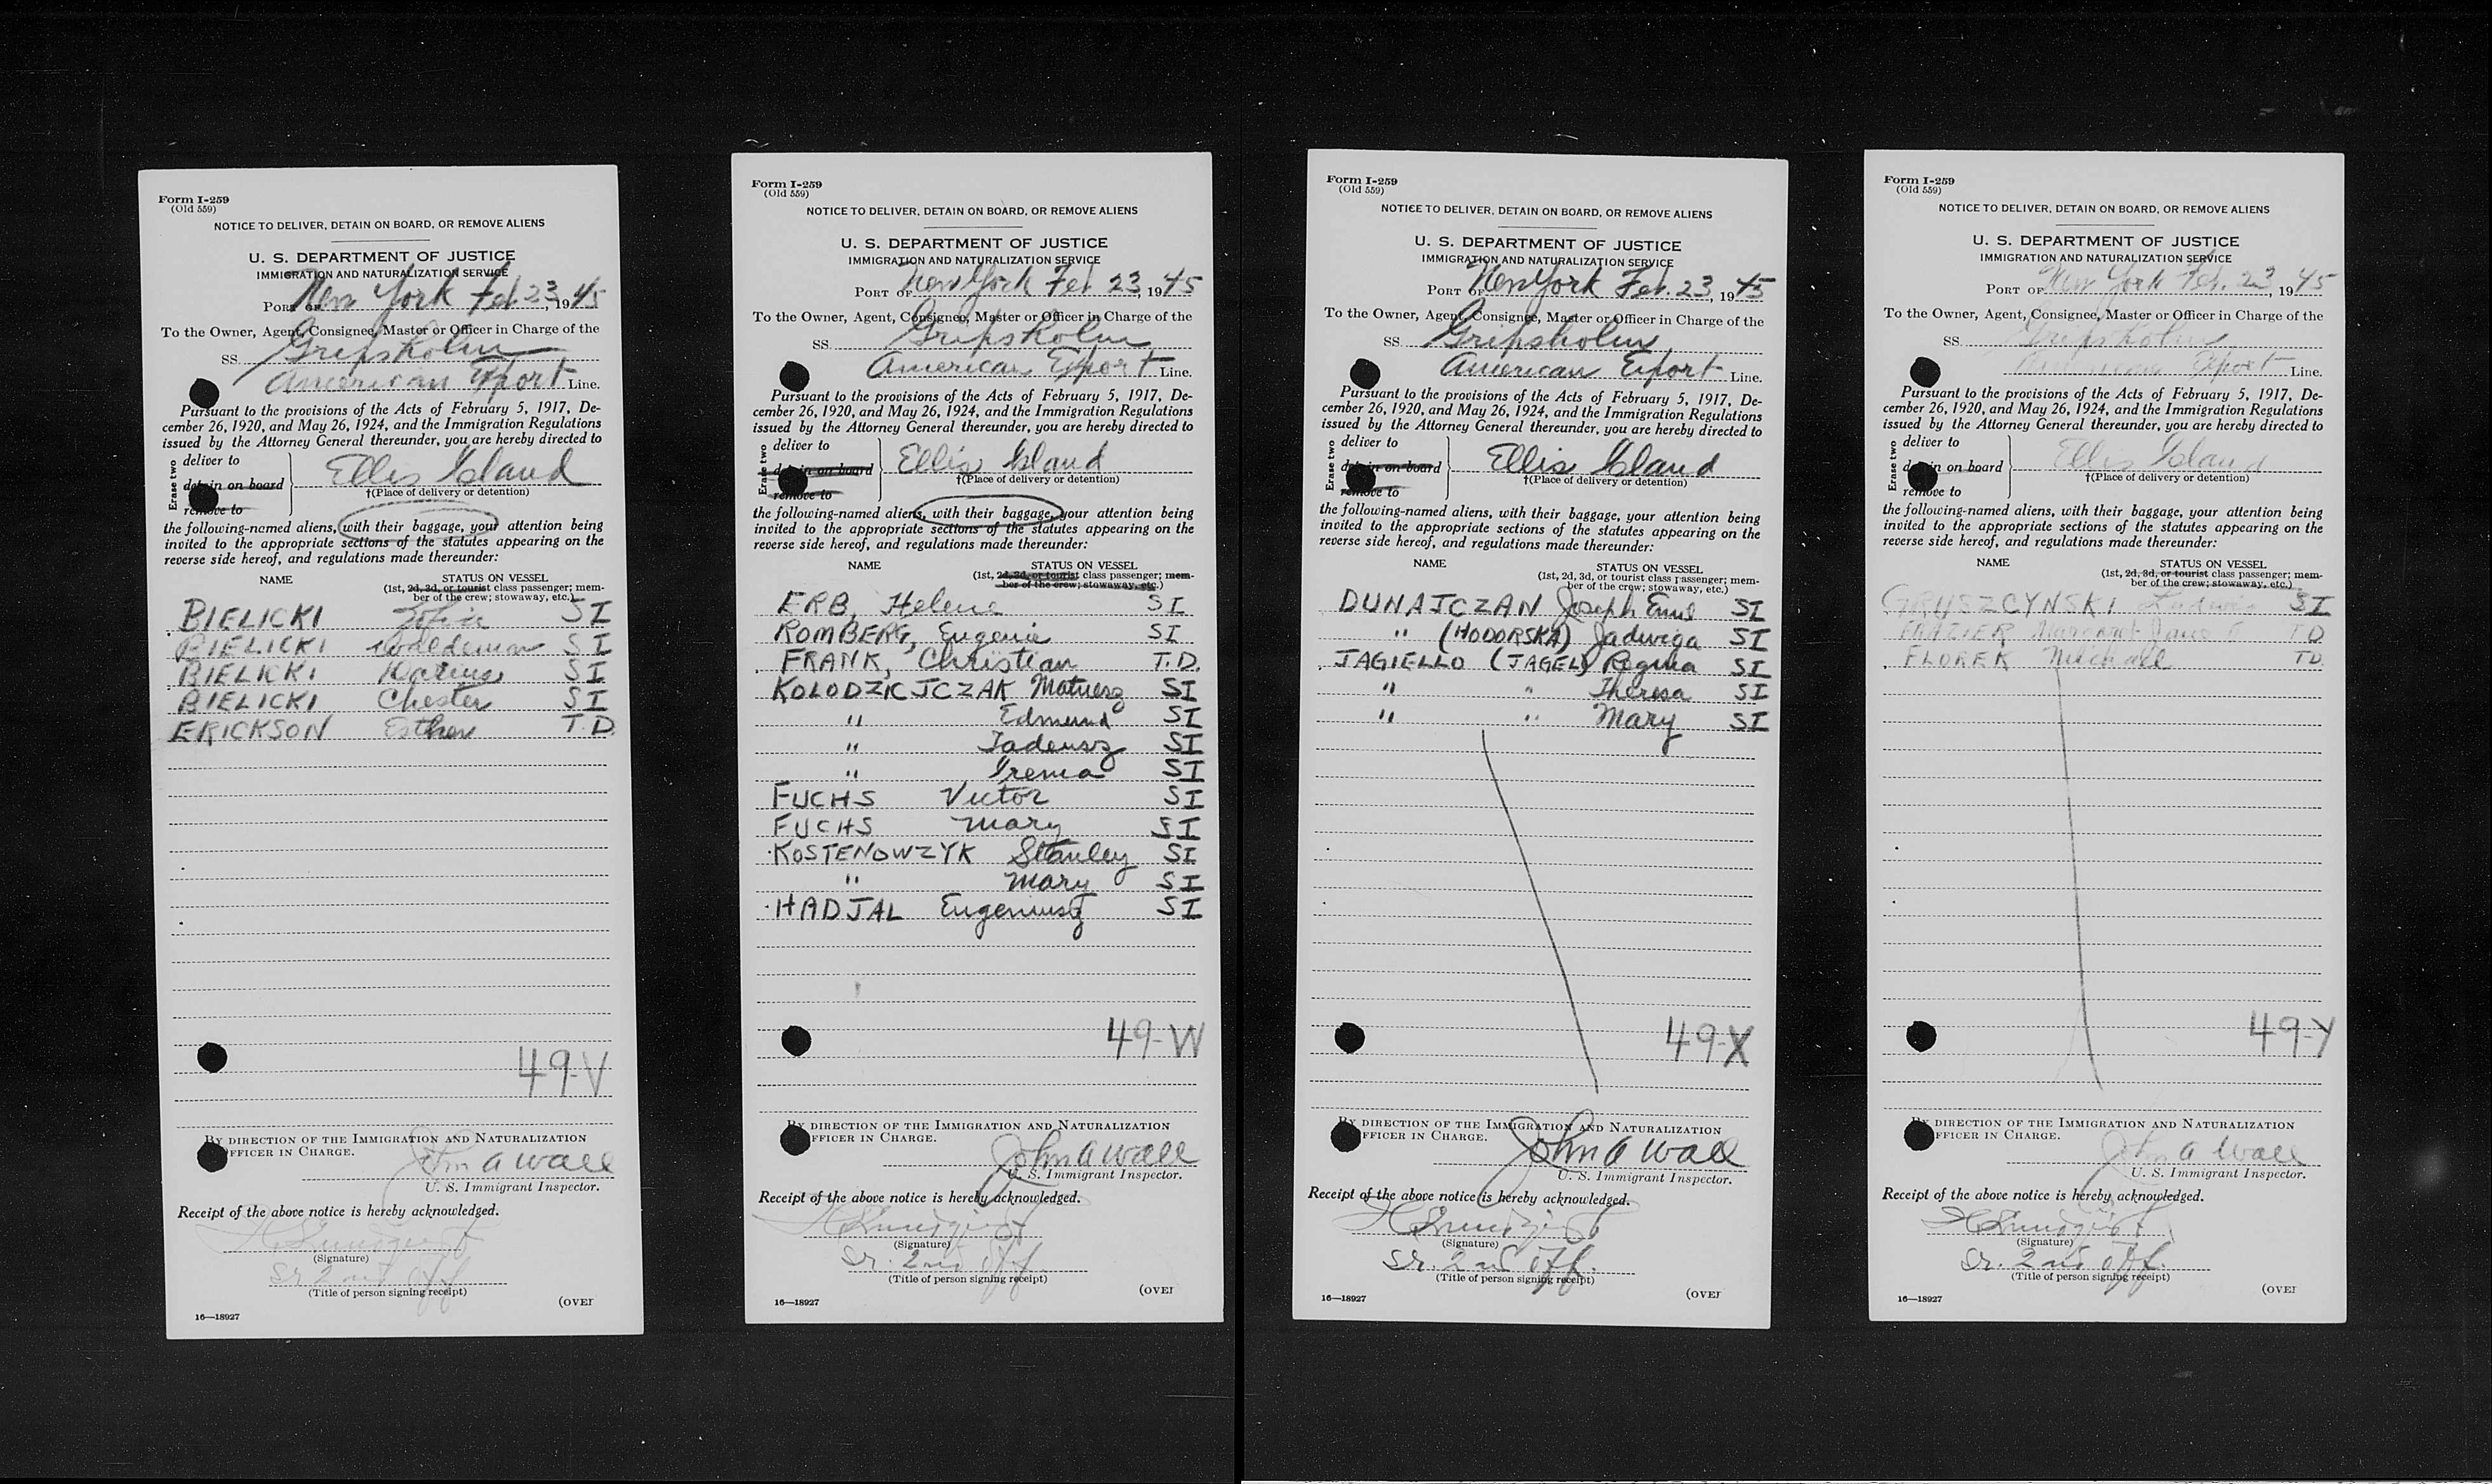 Form I-259
(Old 559)
NOTICE TO DELIVER, DETAIN ON BOARD, OR REMOVE ALIENS
U. S. DEPARTMENT OF JUSTICE
IMMIGRATION AND NATURALIZATION SERVICE
PORT OF New York Feb. 23, 1945
To the Owner, Agent, Consignee, Master or Officer in Charge of the
SS. Gripsholm
American Export Line.
Pursuant to the provisions of the Acts of February 5, 1917, De-
cember 26, 1920, and May 26, 1924, and the Immigration Regulations
issued by the Attorney General thereunder, you are hereby directed to
Erase two
deliver to
detain on board
remove to
Ellis Island
†(Place of delivery or detention)
the following-named aliens, with their baggage, your attention being
invited to the appropriate sections of the statutes appearing on the
reverse side hereof, and regulations made thereunder:
NAME STATUS ON VESSEL
(1st, 2d, 3d, or tourist class passenger; mem-
ber of the crew; stowaway, etc.)
BIELICKI Zofia SI
BIELICKI Woldemar SI
BIELICKI SI
BIELICKI Chester SI
ERICKSON Esther T.D.
49-V
BY DIRECTION OF THE IMMIGRATION AND NATURALIZATION
OFFICER IN CHARGE.
John A Wall
U. S. Immigrant Inspector.
Receipt of the above notice is hereby acknowledged.
(Signature)
Sr 2nd Off
(Title of person signing receipt)
16—18927 (OVER
Form I-259
(Old 559)
NOTICE TO DELIVER, DETAIN ON BOARD, OR REMOVE ALIENS
U. S. DEPARTMENT OF JUSTICE
IMMIGRATION AND NATURALIZATION SERVICE
PORT OF New York Feb 23, 1945
To the Owner, Agent, Consignee, Master or Officer in Charge of the
SS. Gripsholm
American Export Line.
Pursuant to the provisions of the Acts of February 5, 1917, De-
cember 26, 1920, and May 26, 1924, and the Immigration Regulations
issued by the Attorney General thereunder, you are hereby directed to
Erase two
deliver to
detain on board
remove to
Ellis Island
†(Place of delivery or detention)
the following-named aliens, with their baggage, your attention being
invited to the appropriate sections of the statutes appearing on the
reverse side hereof, and regulations made thereunder:
NAME STATUS ON VESSEL
(1st, 2d, 3d, or tourist class passenger; mem-
ber of the crew; stowaway, etc.)
ERB, Helene SI
ROMBERG, Eugenie SI
FRANK, Christian T.D.
KOLODZICJCZAK Matuesz SI
" Edmund SI
" Tadeusz SI
" Irema SI
FUCHS Victor SI
FUCHS Mary SI
KOSTENOWZYK Stanley SI
" Mary SI
HADJAL Eugeniusz SI
49-W
BY DIRECTION OF THE IMMIGRATION AND NATURALIZATION
OFFICER IN CHARGE.
John A Wall
U. S. Immigrant Inspector.
Receipt of the above notice is hereby acknowledged.
(Signature)
Sr. 2nd Off.
(Title of person signing receipt)
16—18927 (OVER
Form I-259
(Old 559)
NOTICE TO DELIVER, DETAIN ON BOARD, OR REMOVE ALIENS
U. S. DEPARTMENT OF JUSTICE
IMMIGRATION AND NATURALIZATION SERVICE
PORT OF New York Feb. 23, 1945
To the Owner, Agent, Consignee, Master or Officer in Charge of the
SS. Gripsholm
American Export Line.
Pursuant to the provisions of the Acts of February 5, 1917, De-
cember 26, 1920, and May 26, 1924, and the Immigration Regulations
issued by the Attorney General thereunder, you are hereby directed to
Erase two
deliver to
detain on board
remove to
Ellis Island
†(Place of delivery or detention)
the following-named aliens, with their baggage, your attention being
invited to the appropriate sections of the statutes appearing on the
reverse side hereof, and regulations made thereunder:
NAME STATUS ON VESSEL
(1st, 2d, 3d, or tourist class passenger; mem-
ber of the crew; stowaway, etc.)
DUNAJCZAN Joseph Emil SI
" (HODORSKA) Jadwiga SI
JAGIELLO (JAGEL) Regina SI
" " Theresa SI
" " Mary SI
49-X
BY DIRECTION OF THE IMMIGRATION AND NATURALIZATION
OFFICER IN CHARGE.
John A Wall
U. S. Immigrant Inspector.
Receipt of the above notice is hereby acknowledged.
(Signature)
Sr. 2nd Off.
(Title of person signing receipt)
16—18927 (OVER
Form I-259
(Old 559)
NOTICE TO DELIVER, DETAIN ON BOARD, OR REMOVE ALIENS
U. S. DEPARTMENT OF JUSTICE
IMMIGRATION AND NATURALIZATION SERVICE
PORT OF New York Feb. 23, 1945
To the Owner, Agent, Consignee, Master or Officer in Charge of the
SS. Gripsholm
American Export Line.
Pursuant to the provisions of the Acts of February 5, 1917, De-
cember 26, 1920, and May 26, 1924, and the Immigration Regulations
issued by the Attorney General thereunder, you are hereby directed to
Erase two
deliver to
detain on board
remove to
Ellis Island
†(Place of delivery or detention)
the following-named aliens, with their baggage, your attention being
invited to the appropriate sections of the statutes appearing on the
reverse side hereof, and regulations made thereunder:
NAME STATUS ON VESSEL
(1st, 2d, 3d, or tourist class passenger; mem-
ber of the crew; stowaway, etc.)
GRUSZCYNSKI SI
FRAZIER Margaret Jane E TD
FLOREK Michael TD
49-Y
BY DIRECTION OF THE IMMIGRATION AND NATURALIZATION
OFFICER IN CHARGE.
John A Wall
U. S. Immigrant Inspector.
Receipt of the above notice is hereby acknowledged.
(Signature)
Sr. 2nd Off.
(Title of person signing receipt)
16—18927 (OVER